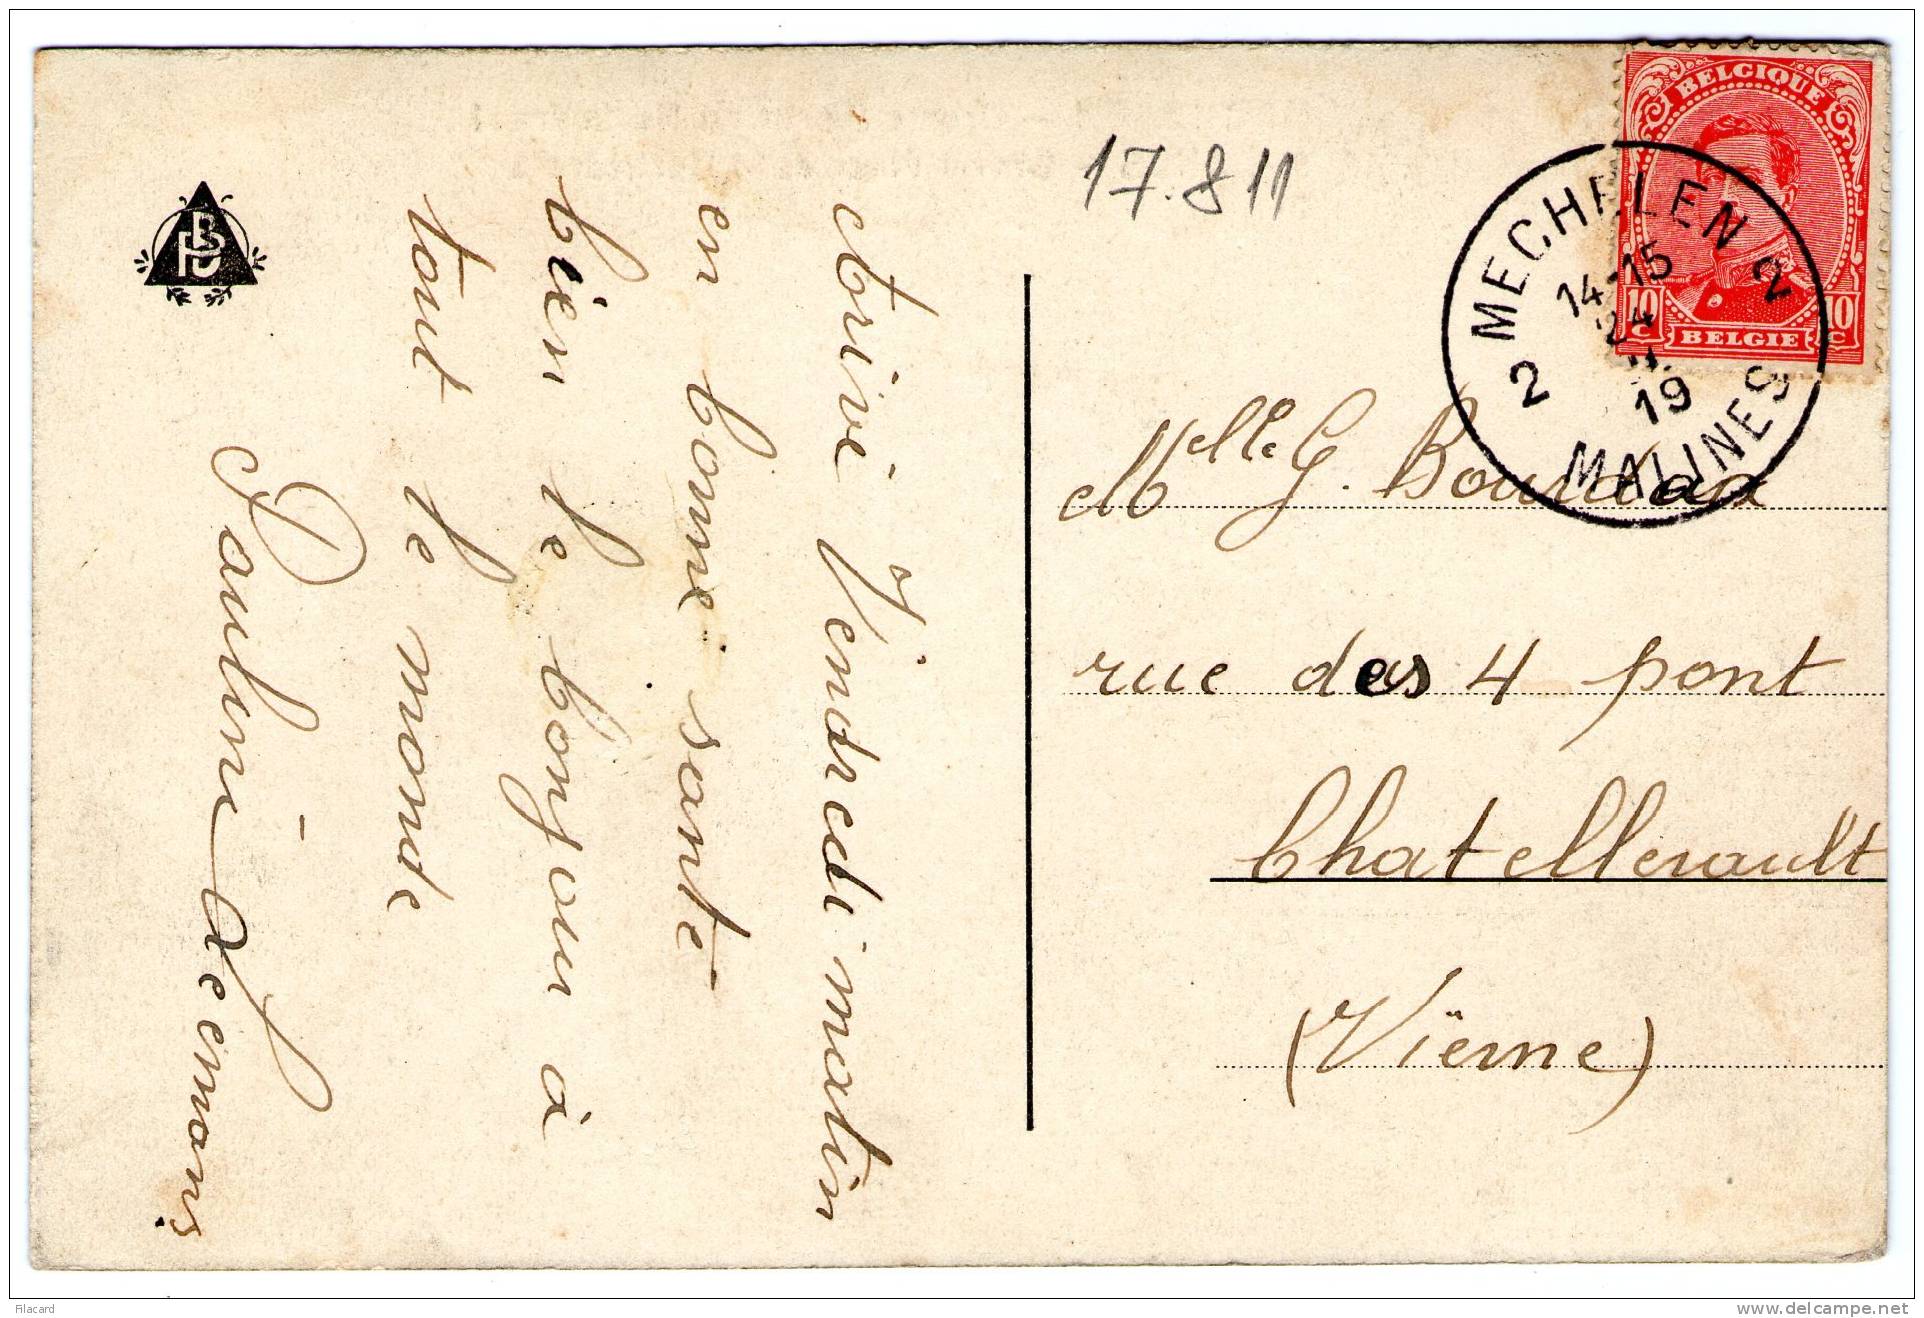 Arivé Vendredi matin
en bonne santé
bien le bonjour à
tout le monde
Pauline Seemans
17.811
BELGIQUE
10 C
10 C
BELGIE
MECHELEN
2
2
14-15
24
19
MALINES
Melle G.
rue des 4 pont
Chatellerault
(Viënne)
PB
Filacard
www.delcampe.net